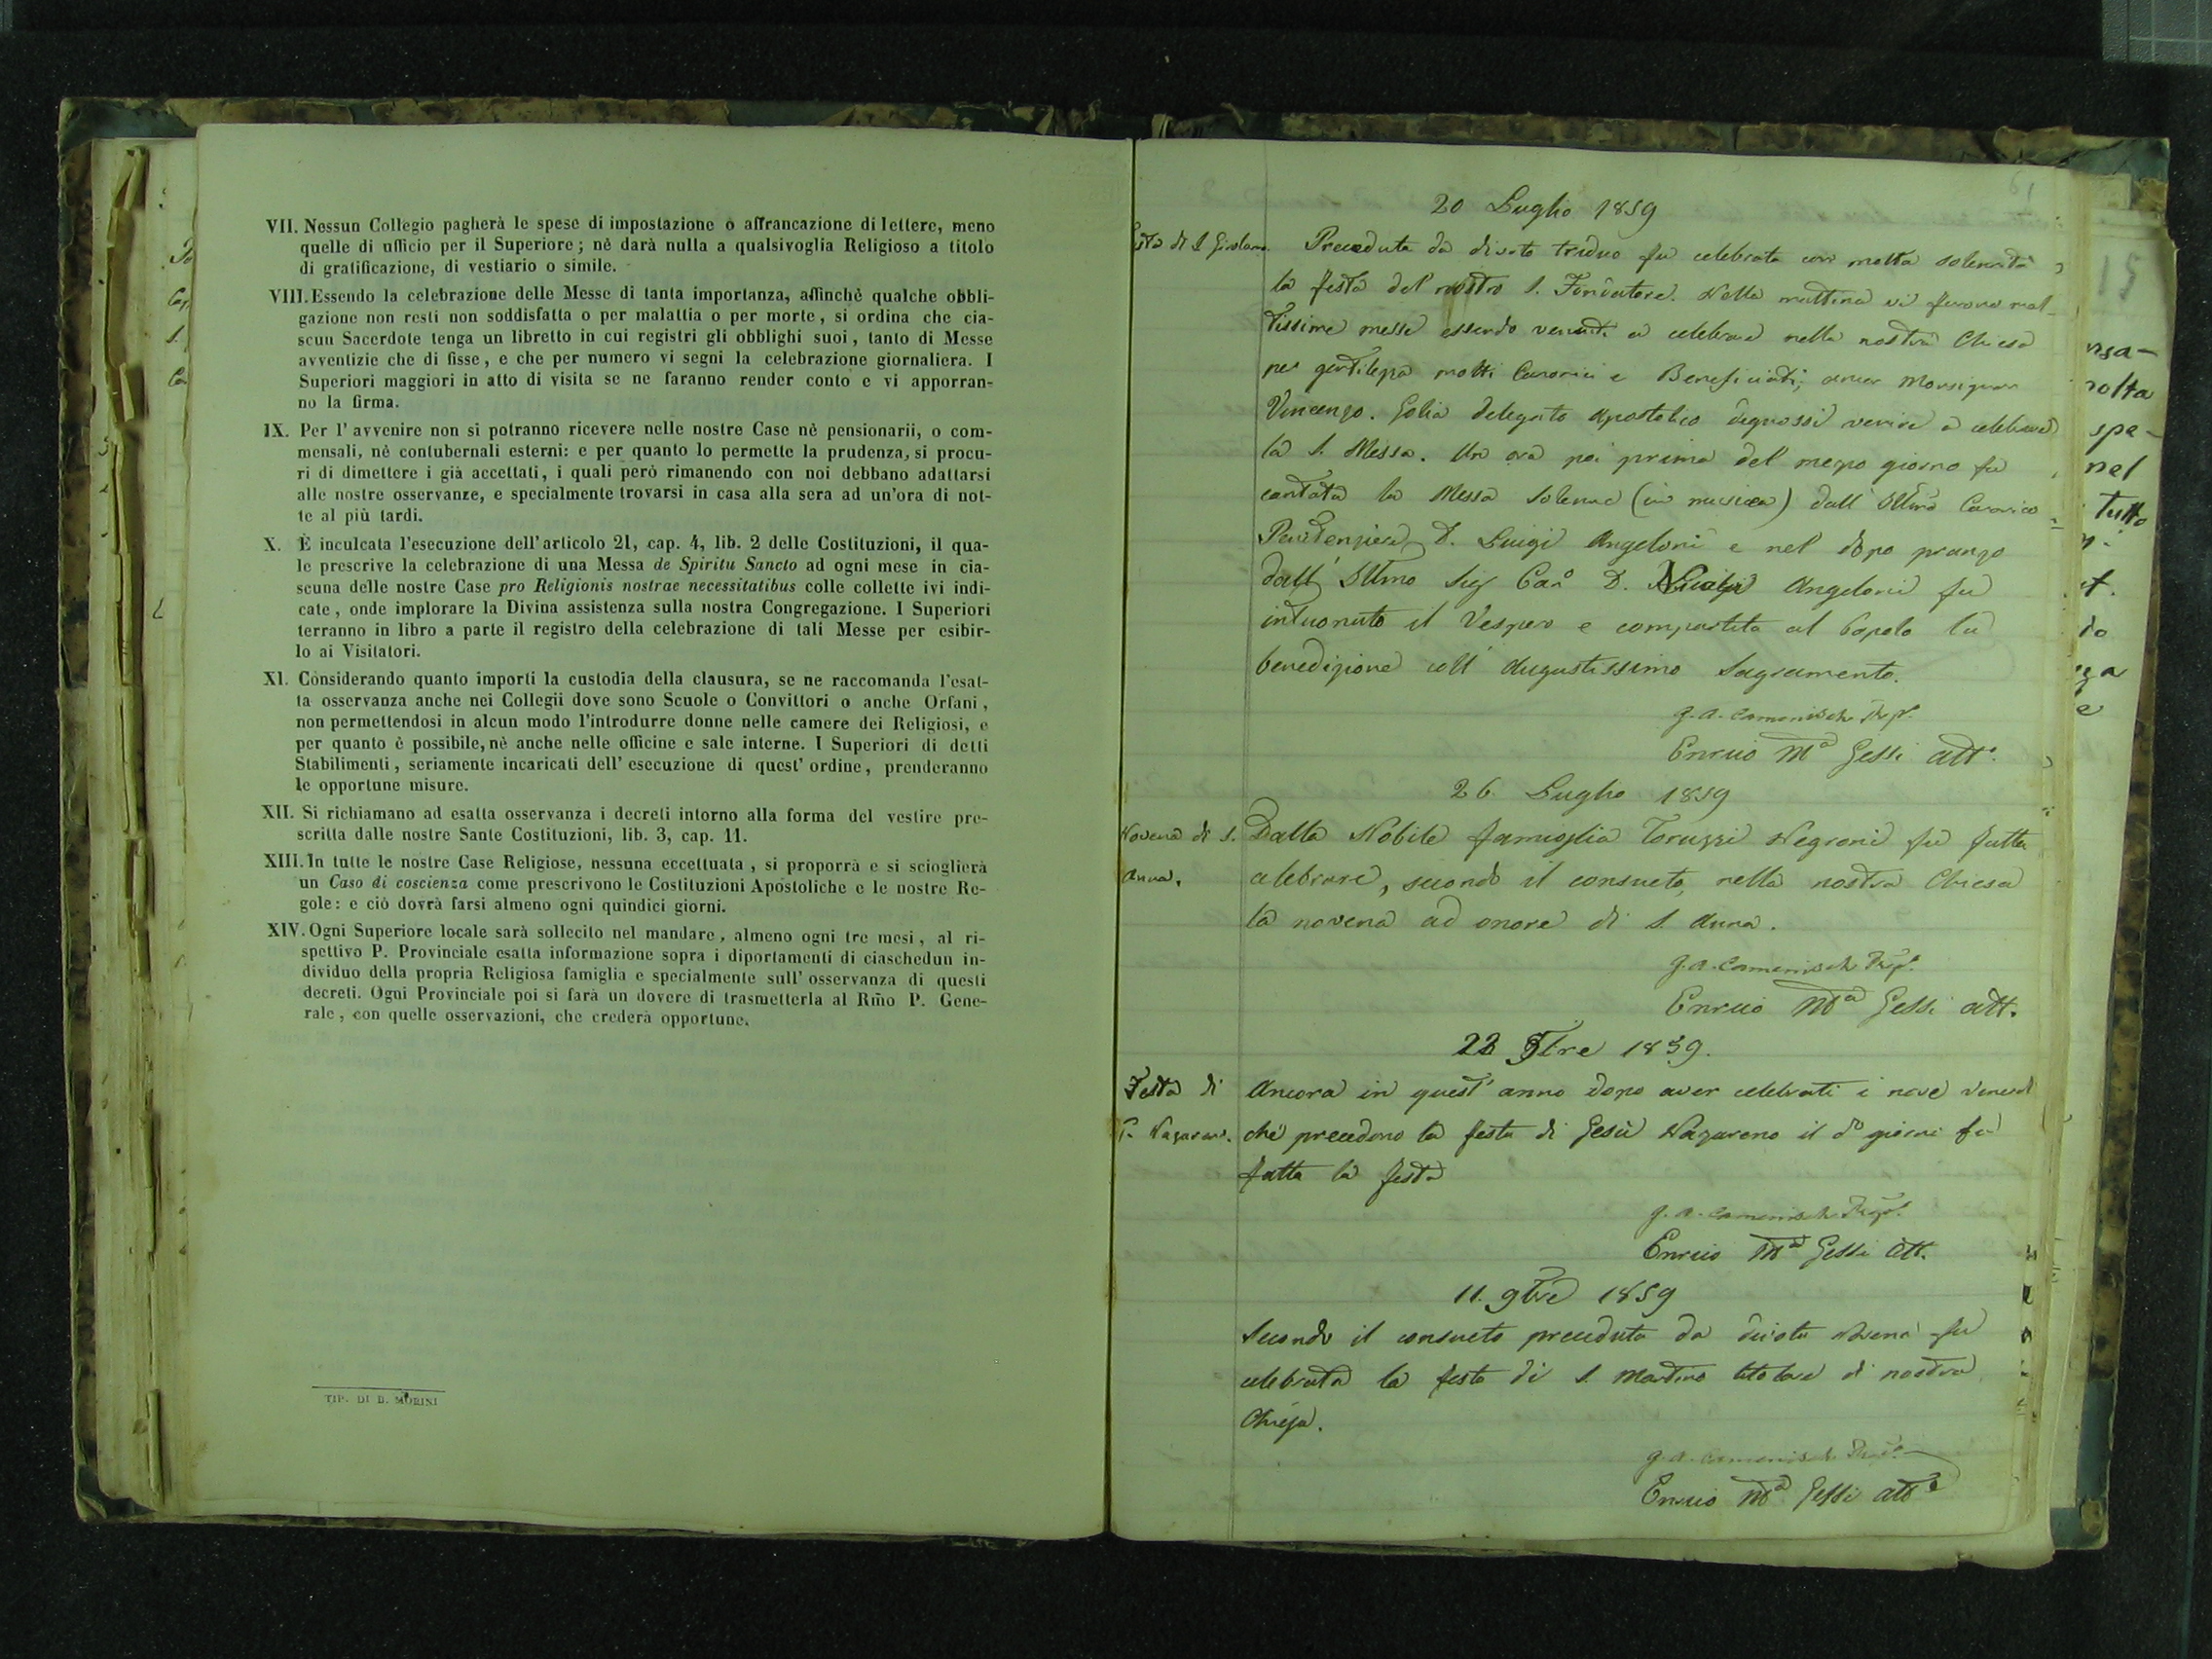 VII. Nessun Collegio pagherà le spese di impostazione o affrancazione di lettere, meno
quelle di ufficio per il Superiore; nè darà nulla a qualsivoglia Religioso a titolo
di gratificazione, di vestiario o simile.
VIII. Essendo la celebrazione delle Messe di tanta importanza, affinchè qualche obbli-
gazione non resti non soddisfatta o per malattia o per morte, si ordina che cia-
scun Sacerdote tenga un libretto in cui registri gli obblighi suoi, tanto di Messe
avventizie che di fisse, e che per numero vi segni la celebrazione giornaliera. I
Superiori maggiori in atto di visita se ne faranno render conto e vi apporran-
no la firma.
IX. Per l'avvenire non si potranno ricevere nelle nostre Case nè pensionarii, o com-
mensali, nè contubernali esterni: e per quanto lo permette la prudenza, si procu-
ri di dimettere i già accettati, i quali però rimanendo con noi debbano adattarsi
alle nostre osservanze, e specialmente trovarsi in casa alla sera ad un'ora di not-
te al più tardi.
X. È inculcata l'esecuzione dell'articolo 21, cap. 4, lib. 2 delle Costituzioni, il qua-
le prescrive la celebrazione di una Messa de Spiritu Sancto ad ogni mese in cia-
scuna delle nostre Case pro Religionis nostrae necessitatibus colle collette ivi indi-
cate, onde implorare la Divina assistenza sulla nostra Congregazione. I Superiori
terranno in libro a parte il registro della celebrazione di tali Messe per esibir-
lo ai Visitatori.
XI. Considerando quanto importi la custodia della clausura, se ne raccomanda l'esat-
ta osservanza anche nei Collegii dove sono Scuole o Convittori o anche Orfani,
non permettendosi in alcun modo l'introdurre donne nelle camere dei Religiosi, e
per quanto è possibile, nè anche nelle officine e sale interne. I Superiori di detti
Stabilimenti, seriamente incaricati dell'esecuzione di quest'ordine, prenderanno
le opportune misure.
XII. Si richiamano ad esatta osservanza i decreti intorno alla forma del vestire pre-
scritta dalle nostre Sante Costituzioni, lib. 3, cap. 11.
XIII. In tutte le nostre Case Religiose, nessuna eccettuata, si proporrà e si scioglierà
un Caso di coscienza come prescrivono le Costituzioni Apostoliche e le nostre Re-
gole: e ciò dovrà farsi almeno ogni quindici giorni.
XIV. Ogni Superiore locale sarà sollecito nel mandare, almeno ogni tre mesi, al ri-
spettivo P. Provinciale esatta informazione sopra i diportamenti di ciaschedun in-
dividuo della propria Religiosa famiglia e specialmente sull'osservanza di questi
decreti. Ogni Provinciale poi si farà un dovere di trasmetterla al Rm̃o P. Gene-
rale, con quelle osservazioni, che crederà opportune.
TIP. DI B. MORINI
20 Luglio 1859
Festa di S. Girolamo
Preceduta da divoto triduo fu celebrata con molta solennità
la festa del nostro S. Fondatore. Nella mattina vi furono mol-
tissime messe essendo venuti a celebrare nella nostra Chiesa
per gentilezza molti Canonici e Beneficiati; Monsignor
Vincenzo. Golia delegato Apostolico degnossi venire a celebrare
la S. Messa. Un ora poi prima del mezzo giorno fu
cantata la Messa Solenne (in musica) dall' Illmo Canonico
Penitenziere D. Luigi Angeloni e nel dopo pranzo
dall' Illmo Sig Cano D. Angeloni fu
intuonato il Vespero e compartita al Popolo la
benedizione coll' Augustissimo Sagramento.
G. A. Camenisch
Enrico Ma Gessi atto.
26 Luglio 1859
Novena di S.
Anna.
Dalla Nobile famiglia Toruzzi Negroni fu fatta
celebrare, secondo il consueto, nella nostra Chiesa
la novena ad onore di S. Anna.
G. A. Camenisch
Enrico Ma Gessi att.
1859.
Festa di
G. Nazareno.
Ancora in quest' anno dopo aver celebrati i nove venerdì
che precedono la festa di Gesù Nazareno il do giorno fu
fatta la festa
G. A. Camenisch
Enrico Ma Gessi att.
11. 9bre 1859
Secondo il consueto preceduta da divota novena fu
celebrata la festa di S. Martino titolare di nostra
Chiesa.
G. A. Camenisch
Enrico Ma Gessi atto